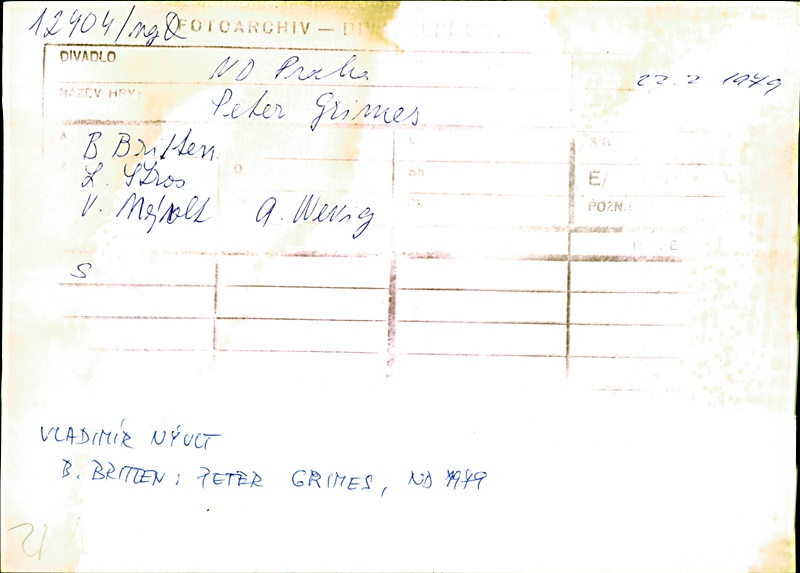 12904/ng
FOTOARCHIV – DIV
DIVADLO ND Praha 22. 2 1979
NÁZEV HRY: Peter Grimes
A B Britten
L. Štros D Sh
V. Nývlt A. Wenig E/
POZN.
S
VLADIMÍR NÝVLT
B. BRITTEN: PETER GRIMES, ND 1979
21